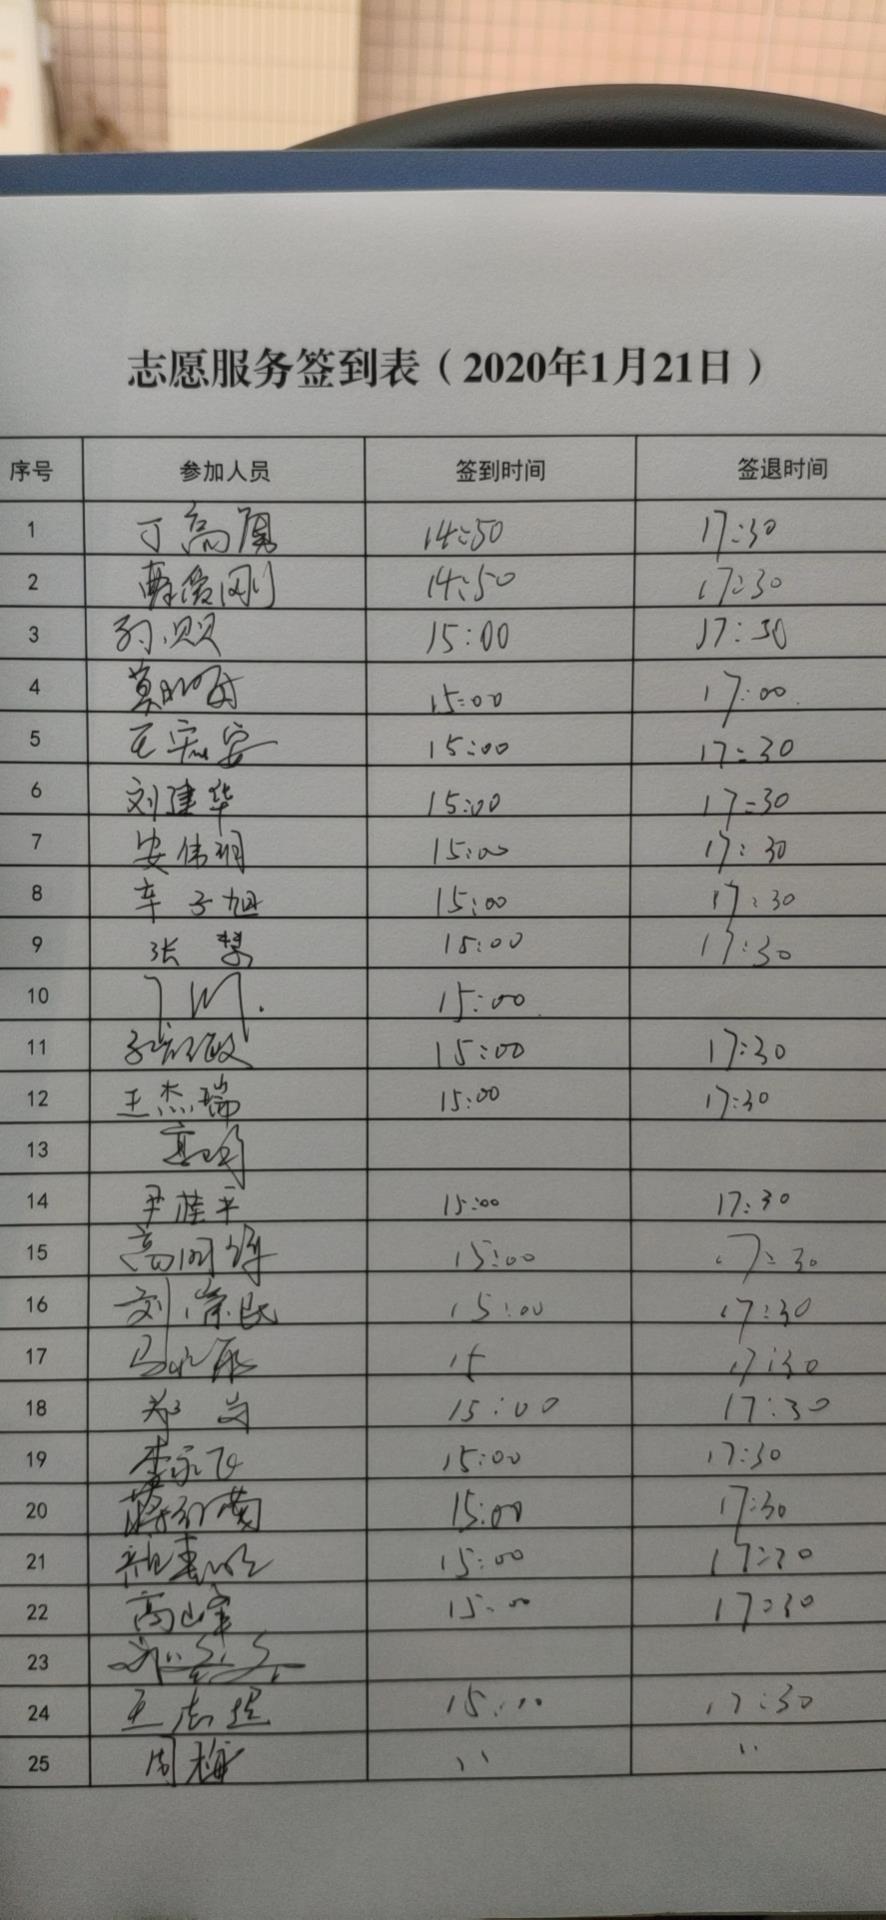 志愿服务签到表（2020年1月21日）
序号 参加人员 签到时间 签退时间
1 丁高凤 14:50 17:30
2 14:50 17:30
3 15:00 17:30
4 15:00 17:00
5 王宏安 15:00 17:30
6 刘建华 15:00 17:30
7 安伟 15:00 17:30
8 辛子旭 15:00 17:30
9 张 15:00 17:30
10 15:00
11 15:00 17:30
12 王杰瑞 15:00 17:30
13
14 尹桂平 15:00 17:30
15 高 15:00 17:30
16 刘 民 15:00 17:30
17 马 15 17:30
18 郑 15:00 17:30
19 李永飞 15:00 17:30
20 蒋 15:00 17:30
21 15:00 17:30
22 高山 15:00 17:30
23
24 王志 15:00 17:30
25 周梅 〃 〃